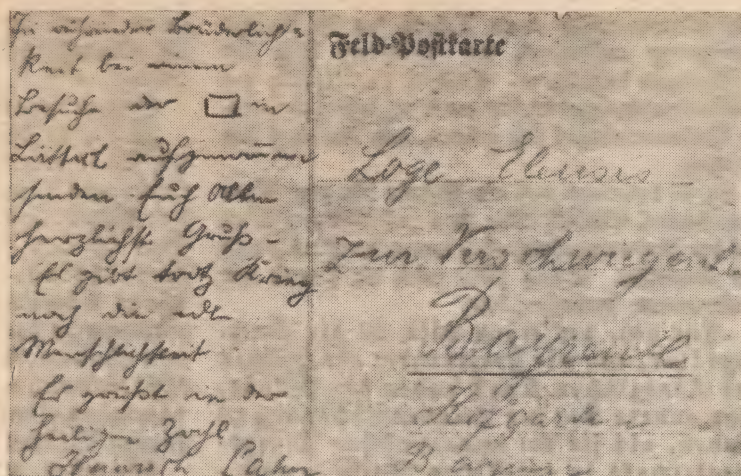 In rührender Brüderlich=
keit bei einem
Besuche der □ in
aufgenommen
senden Euch Allen
herzlichst Gruß -
Es gibt trotz Krieg
noch die edle
Menschlichkeit
Es grüßt in der
heiligen Zahl
Cahn
Feld-Postkarte
Loge Eleusis
zur Verschwiegenh
Bayreuth
Hofgarten
Bayern